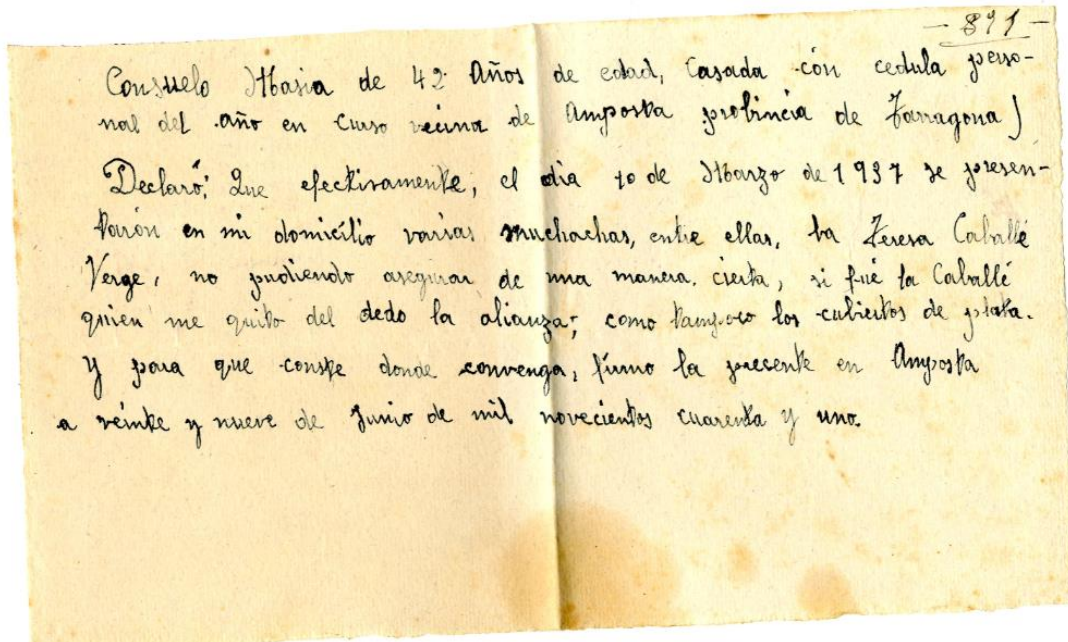 - 891 -
Consuelo Masia de 42 Años de edad, Casada cón cedula perso-
nal del año en curso vecina de Amposta probincia de Tarragona)
Declaró; Que efectivamente, el dia 10 de Marzo de 1937 se presen-
tarón en mi domicilio varias muchachas, entre ellas, la Teresa Caballé
Verge, no pudiendo asegurar de una manera cierta, si fué la Caballé
quien me quito del dedo la alianza; como tampoco los cubiertos de plata.
Y para que conste donde convenga, firmo la presente en Amposta
a veinte y nueve de Junio de mil novecientos cuarenta y uno.